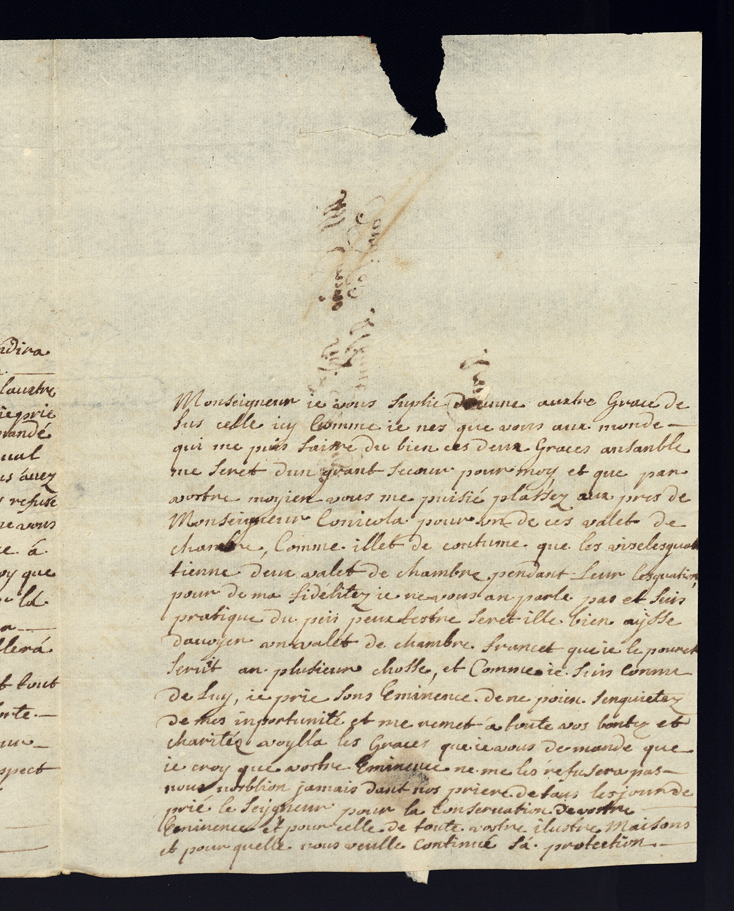 ndira
laustre
andé
ous avez
refusé
ne vous
oy que
llerá
t tout
orte.
spect
Monseigneur ie vous suplie dunne auxtre Grace de
sus celle icy Comme ie nes que vous aux monde
qui me puis faire du bien ces deux Graces ansanble
me seret dun grant secour pour moy et que par
vostre moyien vous me puisié plassez aux pres de
Monseigneur Conicola pour un de ces valet de
chambre, Comme illet de coutume que les
tienne deux valet de chambre pendant Leur
pour de ma fidelitez ie ne vous an parle pas et suis
pratique du peis peux Lestre seret ille bien aysse
davoyer un valet de chambre francet que ie le pouret
servit an plusieur chosse, et Comme ie suis connu
de Luy, ie prie sons Eminence de ne poien sinquietez
de mes inportunité et me remet a toute vos bontez et
charitéz voylla les Graces que ie vous demande que
ie croy que vostre Eminence ne me les refusera pas
nous noublion jamais dant nos priere de tous les jour de
prié le Seigneur pour la Conservation de vostre
Eminence et pour celle de toute vostre ilustre Maisons
et pour quelle nous veulle Continué sa protection